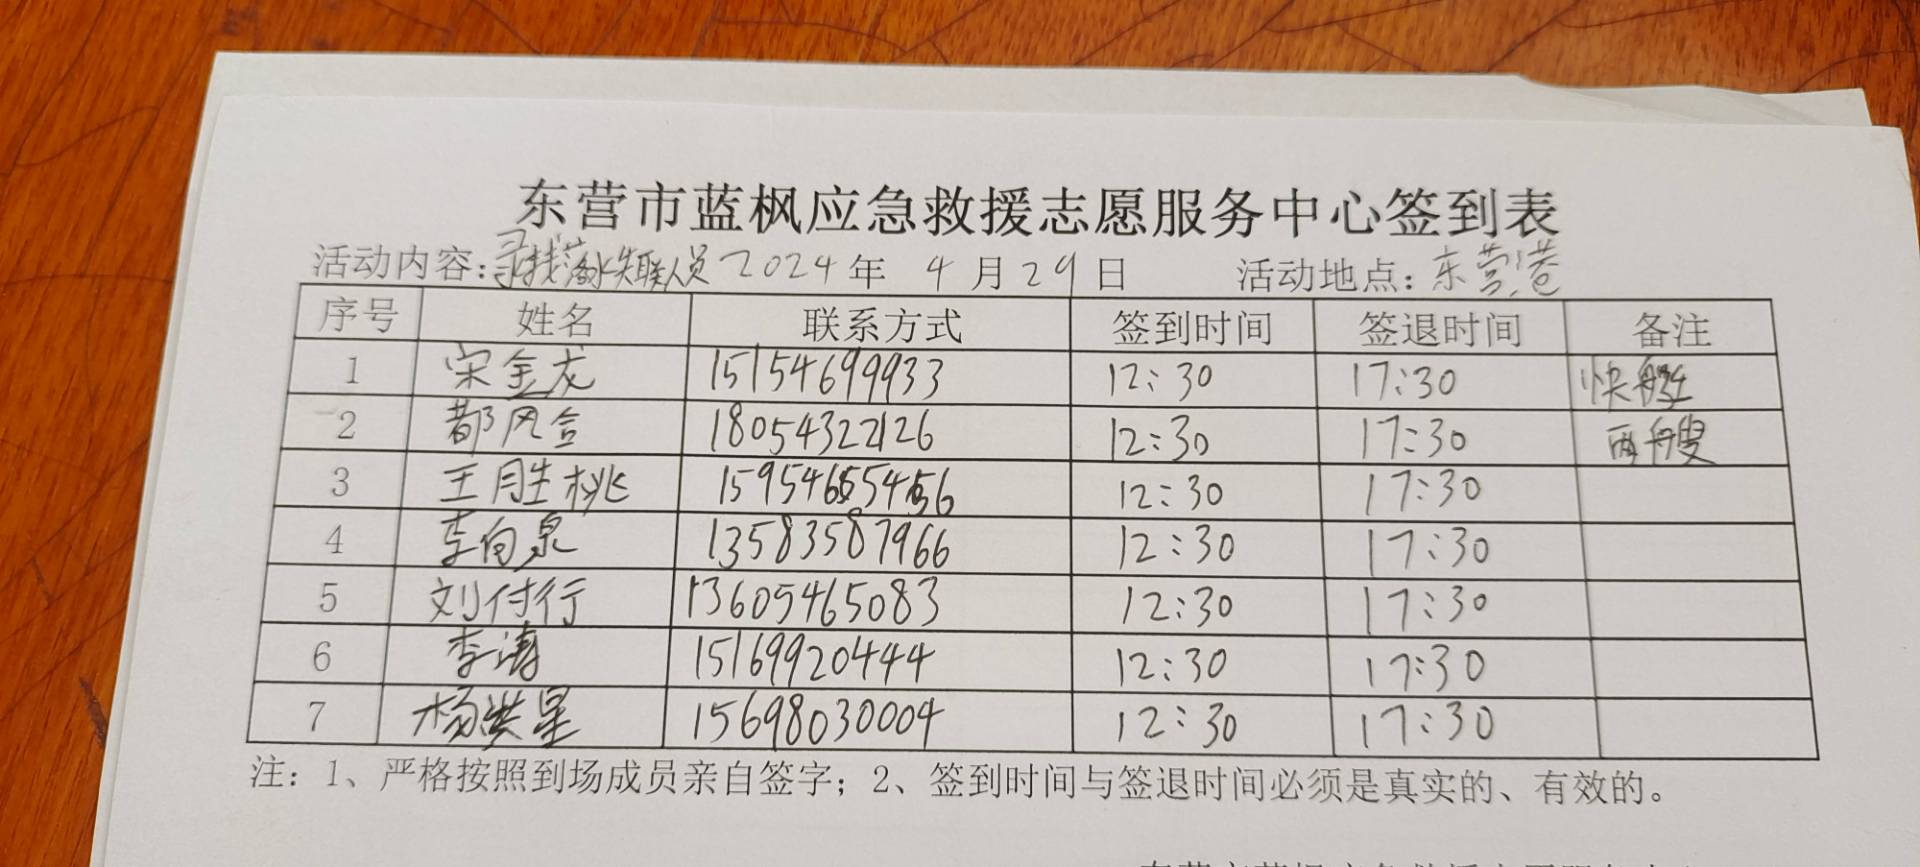 东营市蓝枫应急救援志愿服务中心签到表
活动内容:寻找落水失联人员 2024年 4月29日 活动地点:东营港
序号 姓名 联系方式 签到时间 签退时间 备注
1 宋金龙 15154699933 12:30 17:30 快艇
2 都风合 18054322126 12:30 17:30 两艘
3 王胜桃 15954655456 12:30 17:30
4 李向泉 13583587966 12:30 17:30
5 刘付行 13605465083 12:30 17:30
6 李涛 15169920444 12:30 17:30
7 杨洪星 15698030004 12:30 17:30
注:1、严格按照到场成员亲自签字;2、签到时间与签退时间必须是真实的、有效的。